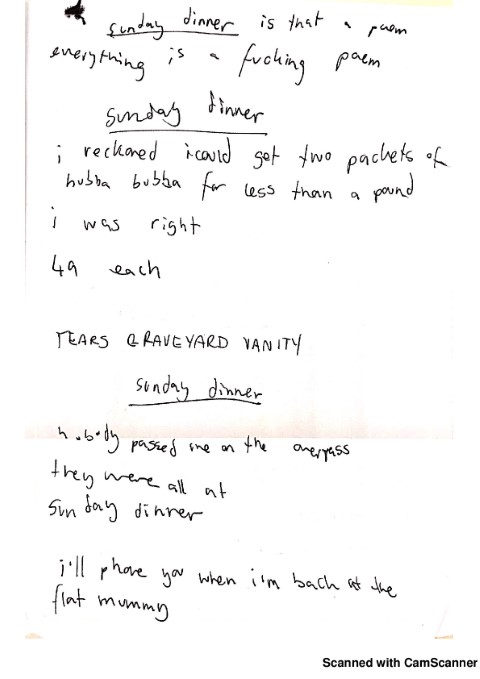 sunday dinner is that a poem
everything is a fucking poem
sunday dinner
i reckoned i could get two packets of
hubba bubba for less than a pound
i was right
49 each
TEARS GRAVEYARD VANITY
sunday dinner
nobody passed me on the overpass
they were all at
sunday dinner
i'll phone you when i'm back at the
flat mummy
Scanned with CamScanner